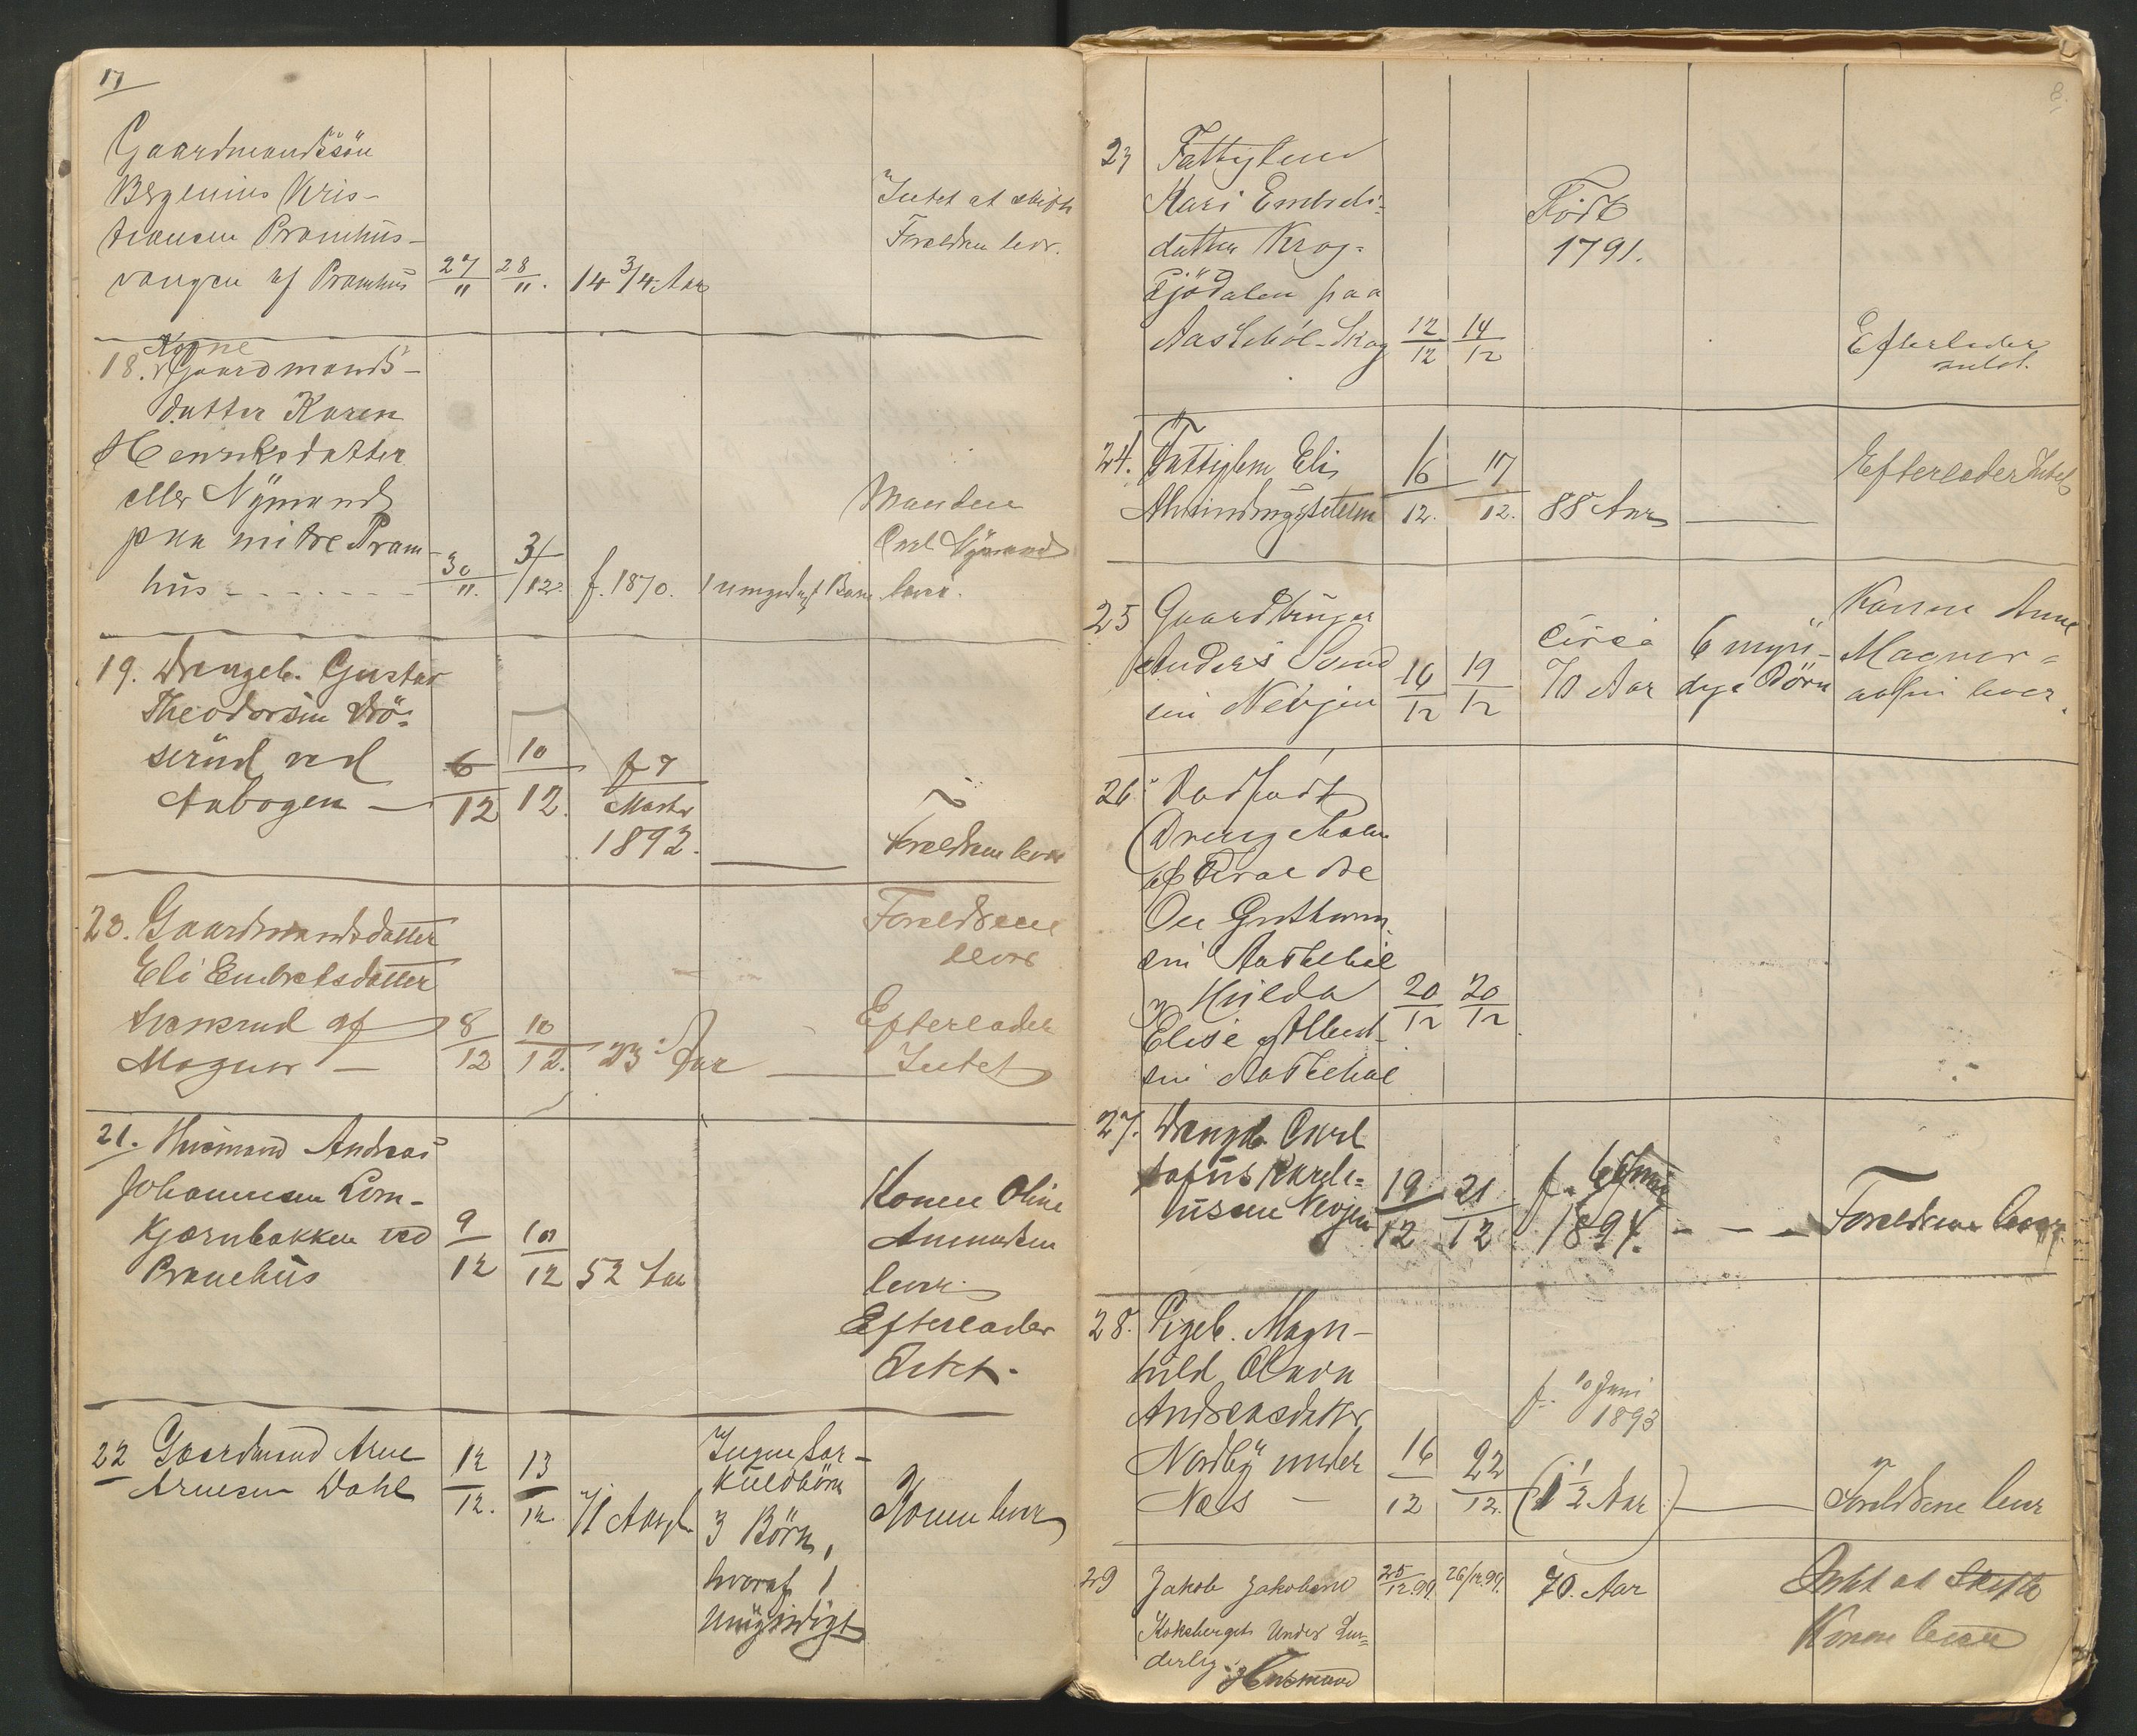 17
Gaardmandssön
Bergenius Kris-
tiansen Pramhus-
vangen af Pramhus 27/11 28/11. 14 3/4 Aar
Intet at skifte
Foreldrene lever.
Kone
18. Gaardmands-
datter Karen
Henriksdatter
eller Nÿmand
paa nitre Pram-
hus - - - - - - 30/11. 3/12. f. 1870. 1 umyndigt Barn
Manden
Carl Nÿmand
lever.
19. Drengeb. Gustav
Theodorsen Brö-
serud ved
Aabogen — 6/12 10/12. f 7
Marts
1892. —
Foreldrene lever
20. Gaardmandsdatter
Eli Embretsdatter
af
Magnor — 8/12 10/12. 23 Aar —
Foreldrene
lever
Efterlader
Intet
21. Husmand Andreas
Johannesen Lom-
kjærnbakken ved
Pramhus 9/12 10/12 52 Aar
Konen Oline
Amundsen
lever
Efterlader
Intet.
22 Gaardmand Arne
Arnesen Dahl 12/12. 13/12. 71 Aar
Ingen Sær-
kuldbörn
3 Börn,
hvoraf 1
umÿndigt
Konen lever
8.
23 Fattiglem
Kari Embrets-
datter Krog-
tjödalen paa
Aabeköl-Skog 12/12 14/12
Födt
1791.
Efterlader
intet.
24. Fattiglem Eli
Almindingssæteren 16/12. 17/12. 88 Aar —
Efterlader Intet
25 Gaardbruger
Anders Svend
sen Nevjen 16/12 19/12 Circa
70 Aar
6 myn-
dige Börn
Konen Anne
Magner-
lever.
26. Dødfødt
Drengebarn
af Foreldre
Ole Guthorm
sen
og Hilda
Elise Albert-
sen 20/12 20/12.
27. Drengb. Carl
Karele-
nusen Nevjen 19/12 21/12 f.
1894. - - -
Foreldrene lever
28. Pigeb. Magn-
hild Olava
Andreasdatter
Nordbÿ under
Næs — 16/12 22/12. f. 10 Juni
1893
(1 1/2 Aar) —
Foreldrene lever
29 Jakob Jakobsen 25/12.94. 26/12.94. 70. Aar
Koksberget Under Lun-
derby. Husmand
Intet at Skifte
Konen lever